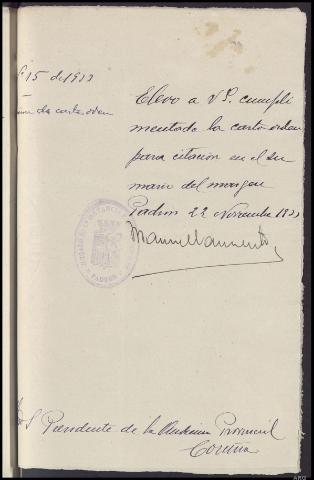 15 de 1923
de carta orden
Elevo a V. P. cumpli
mentada la carta orden
para citacion en el su
mario del margen
Padron 22 Noviembre 1923
Manuel
JUZGADO DE INSTANCIA
PADRON
Presidente de la Audiencia Provincial
Coruña